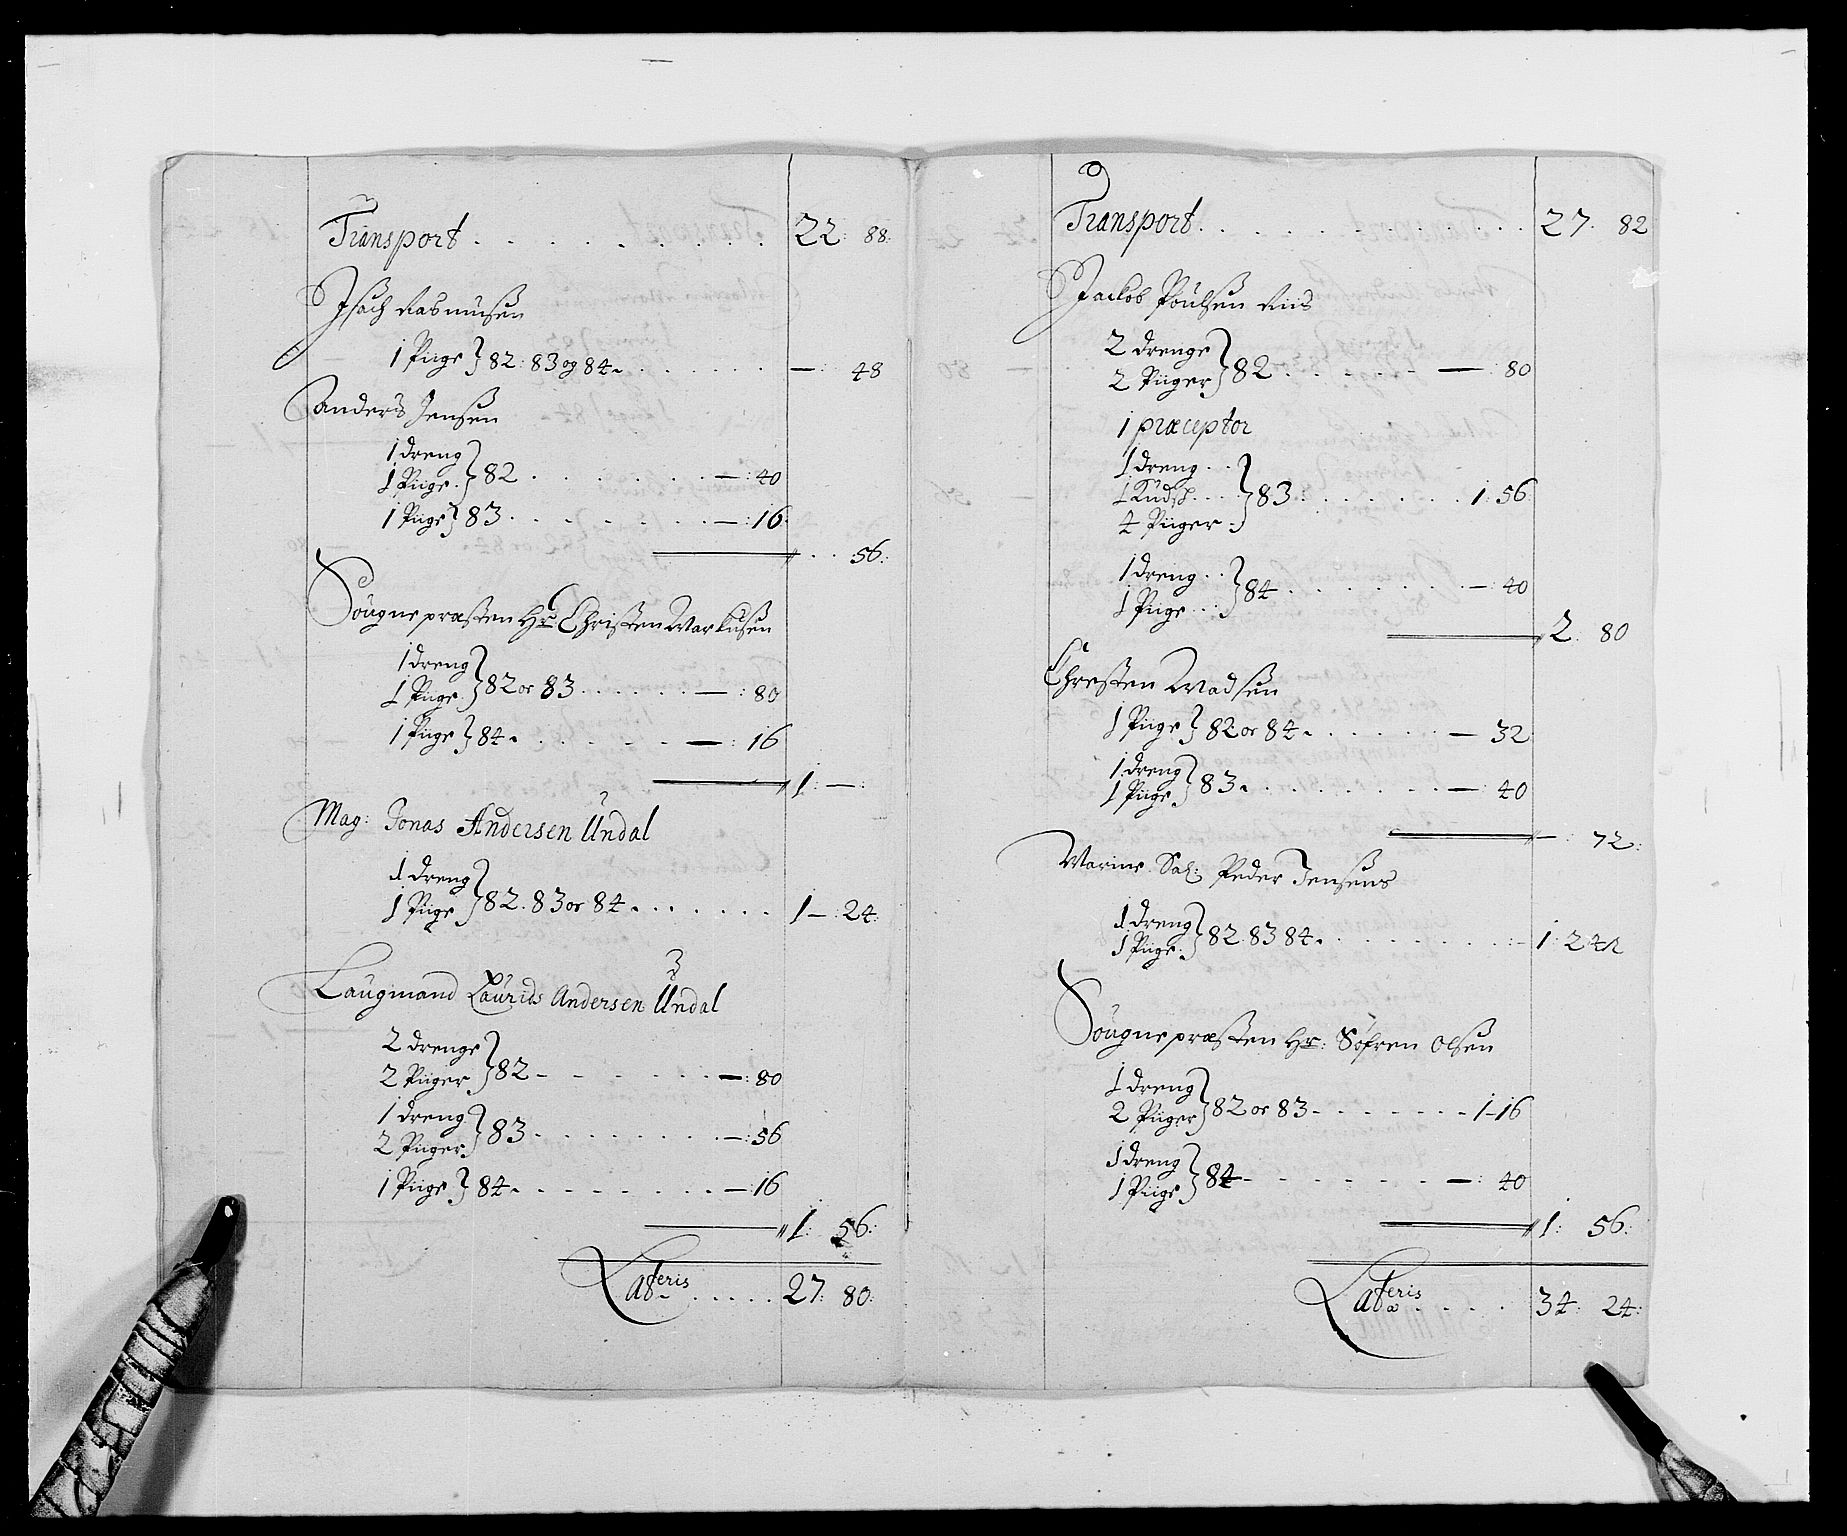 Transport . . . . . . . . . . 22: 88:
Isach Rasmusen
1 Piige } 82: 83 og 84 . . . . . . . — : 48
Anders Jensen
1 dreng
1 Piige } 82 . . . . . . . — : 40
1 Piige } 83 . . . . . . . — : 16
. . 56:
Sougnepræsten Hr Christen Markusen
1 dreng
1 Piige } 82 or 83 . . . . . . — : 80
1 Piige } 84 . . . . . . — : 16
1: — :
Mag: Jonas Andersen Undal
1 dreng
1 Piige } 82. 83 or 84 . . . . . . . 1 — : 24:
Laugmand Laurids Andersen Undal
2 drenge
2 Piiger } 82 - . . . . . . — : 80
1 dreng
2 Piiger } 83 . . . . . . . . — : 56
1 Piige } 84 . . . . . . . . . — 16
1: 56:
Lateris . . . . . 27: 80:
Transport . . . . . . . . . . . . . 27. 82
Jackob Poulsen Riis
2 drenge
2 Piiger } 82 . . . . . . — 80
1 præceptor
1 dreng . .
1 Kudsk . . .
4 Piiger . } 83 . . . . . . . 1: 56:
1 dreng . .
1 Piige . . . } 84 . . . . . . . . — : 40
2: 80
Chresten Madsen
1 Piige } 82 or 84 . . . . . . — 32
1 dreng
1 Piige } 83 . . . . . . . . . — : 40
— : 72:
Marine Sal: Peder Jensens
1 dreng
1 Piige } 82. 83 84 . . . . . . . . . . 1: 24
Sougnepræsten Hr: Søfren Olsen
1 dreng
2 Piiger } 82 or 83 . . . . . . . . 1 — 16
1 dreng
1 Piige } 84 . . . . . . . . — : 40
1: 56:
Lateris . . . . . 34: 24: